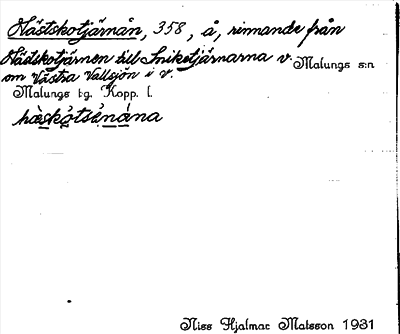 Hästskotjärnån, 358, å, rinnande från
Hästskotjärnen till Sniketjärnarna v.
om Västra Vallsjön i v.
Malungs s:n
Malungs tg. Kopp. l.
hæskȯtsėnȧna
Niss Hjalmar Matsson 1931